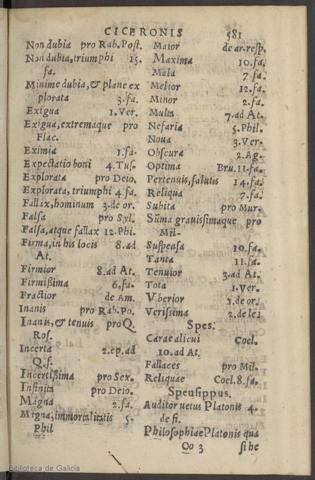 CICERONIS 581
Non dubia pro Rab. Post.
Non dubia, triumphi 15.
fa.
Minime dubia, & plane ex
plorata 3. fa.
Exigua 1. Ver.
Exigua, extremaque pro
Flac.
Eximia 1. fa.
Expectatio boni 4. Tus.
Explorata pro Deio.
Explorata, triumphi 4. fa.
Fallax, hominum 3. de or.
Falsa pro Syl.
Falsa, atque fallax 12. Phi.
Firma, in his locis 8. ad
At.
Firmior 8. ad At.
Firmißima 6. fa.
Fractior de Am.
Inanis pro Rab. Po.
Inanis, & tenuis pro Q.
Ros.
Incerta 2. ep. ad
Q. f.
Incertißima pro Sex.
Infinita pro Deio.
Magna 2. fa.
Magna, immortalitatis 5.
Phil
Maior de ar. resp.
Maxima 10. fa.
Mala 7. fa.
Melior 12. fa.
Minor 2. fa.
Multa 7. ad At.
Nefaria 5. Phil.
Nova 3. Ver.
Obscura 2. Ag.
Optima Bru. 11. fa.
Pertenuis, salutis 14. fa.
Reliqua 7. fa.
Subita pro Mur.
Sũma gravissimaque pro
Mil.
Suspensa 10. fa.
Tanta 11. fa.
Tenuior 3. ad At.
Tota 1. Ver.
Vberior 1. de or.
Verissima 2. de le.
Spes.
Carae alicui Coel.
10. ad At.
Fallaces pro Mil.
Reliquae Coel. 8. fa.
Speusippus.
Auditor uetus Platonis 4.
de fi.
Philosophiae Platonis qua
Oo 3 si he
Biblioteca de Galicia